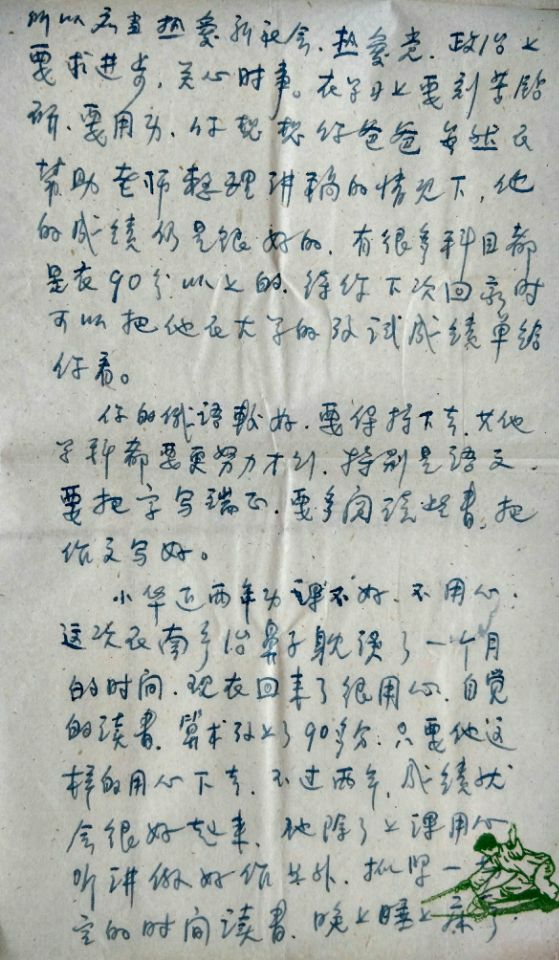 所以应当热爱新社会、热爱党、政治上
要求进步，关心时事。在学习上要刻苦钻
研、要用功，你想想你爸爸虽然在
帮助老师整理讲稿的情况下，他
的成绩仍是很好的，有很多科目都
是在90分以上的，待你下次回家时
可以把他在大学的考试成绩单给
你看。
你的俄语较好，要保持下去，其他
学科都要更努力才行，特别是语文，
要把字写端正，要多阅读些书，把
作文写好。
小华近两年功课不好，不用心，
这次在南京治鼻子耽误了一个月
的时间，现在回来了很用心，自觉
的读书，算术考上了90多分，只要他这
样的用心下去，不过两年，成绩就
会很好起来，他除了上课用心
听讲做好作业外，抓紧一
定的时间读书，晚上睡上